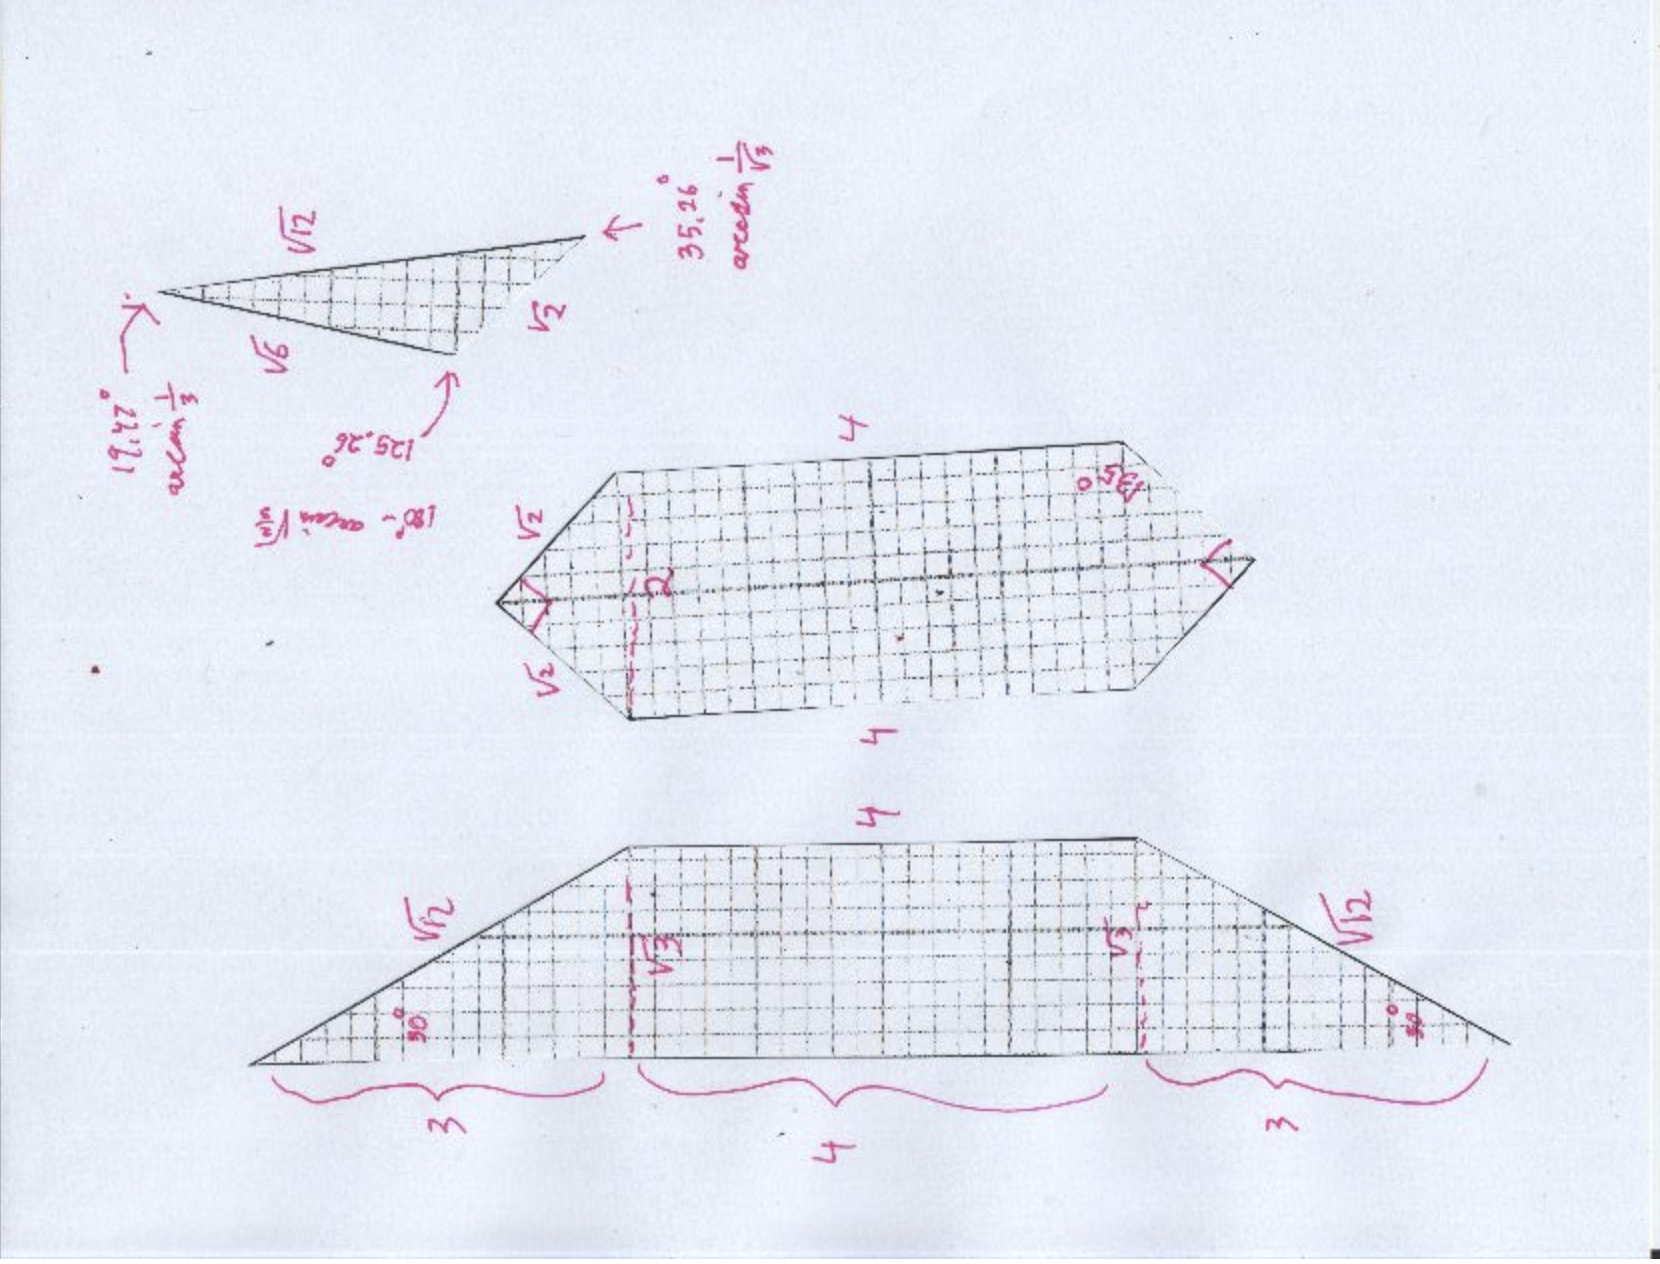 √12
√6
√2
19.47°
arcsin 1/3
35.26°
arcsin 1/√3
125.26°
180° - arcsin √(2/3)
4
√2
√2
2
135°
4
4
√12
√12
√3
√3
30°
30°
3
4
3